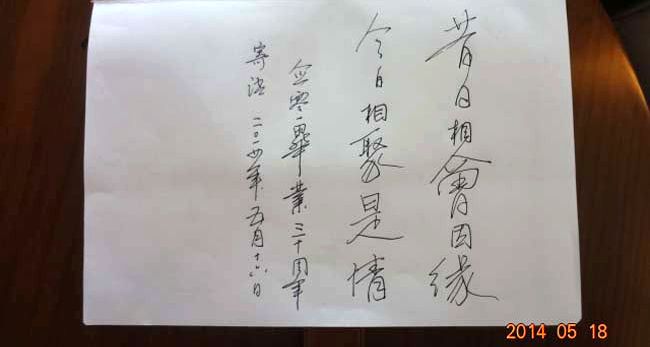 昔日相會因缘
今日相聚是情
畢業三十周年
二〇一四年五月十六日
2014 05 18